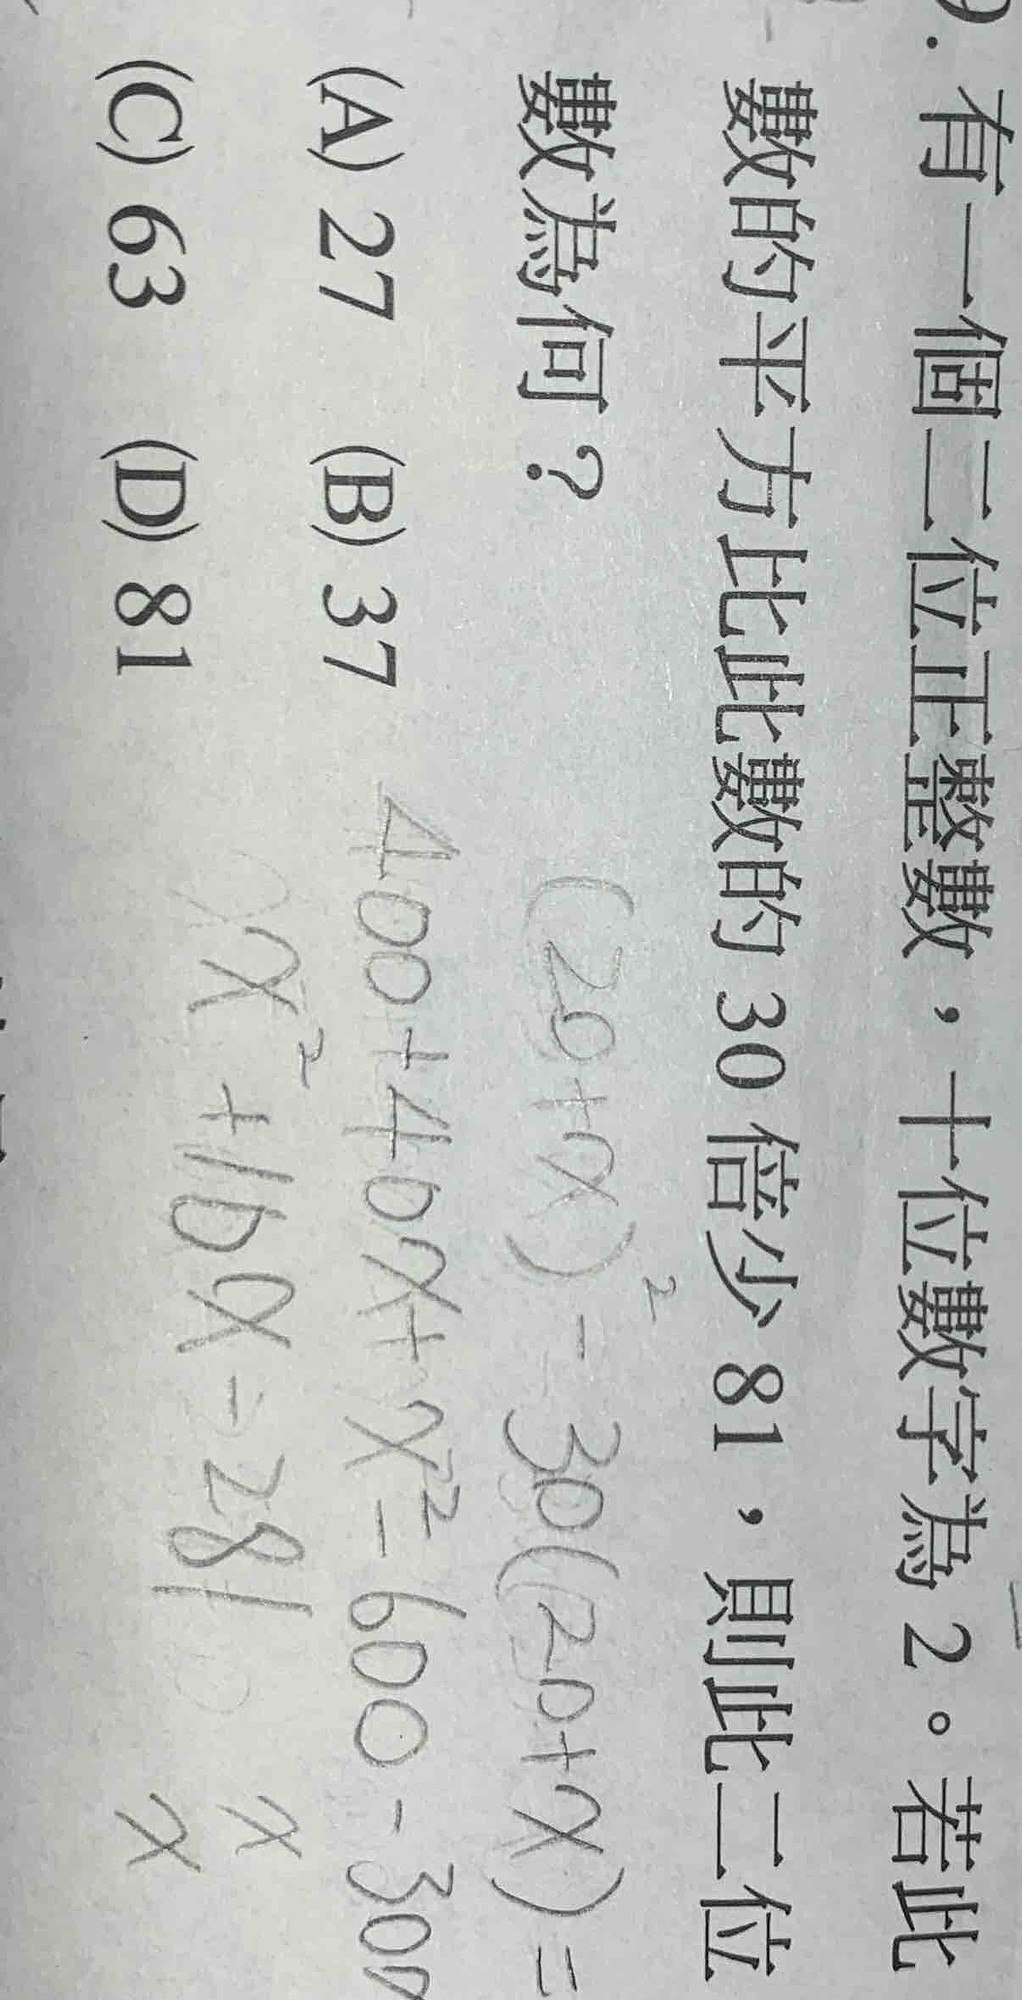 9. 有一個二位正整數，十位數字為 2。若此
數的平方比此數的 30 倍少 81，則此二位
數為何？
(A) 27 (B) 37
(C) 63 (D) 81
(20+x)² - 30(20+x) =
400+40x+x²-600-30
x²+10x-281
x
x